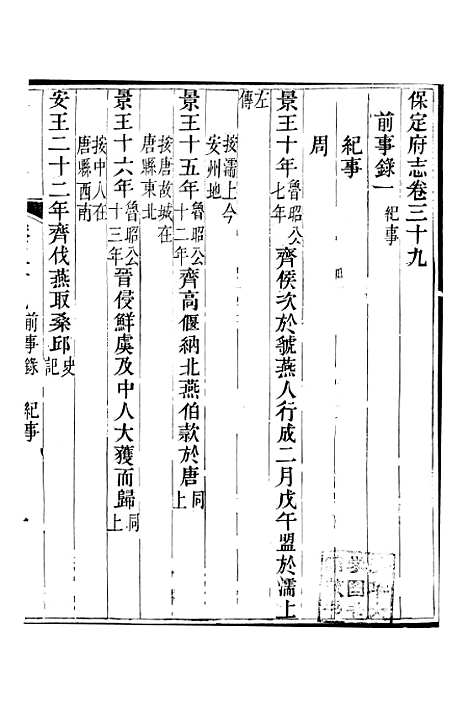 保定府志卷三十九
前事錄一 紀事
紀事
周
景王十年魯昭公七年齊侯次於虢燕人行成二月戊午盟於濡上
左傳
按濡上今安州地
景王十五年魯昭公十二年齊高偃納北燕伯款於唐同上
按唐故城在唐縣東北
景王十六年魯昭公十三年晉侵鮮虞及中人大獲而歸同上
按中人在唐縣西南
安王二十二年齊伐燕取桑邱史記
前事錄 紀事 一